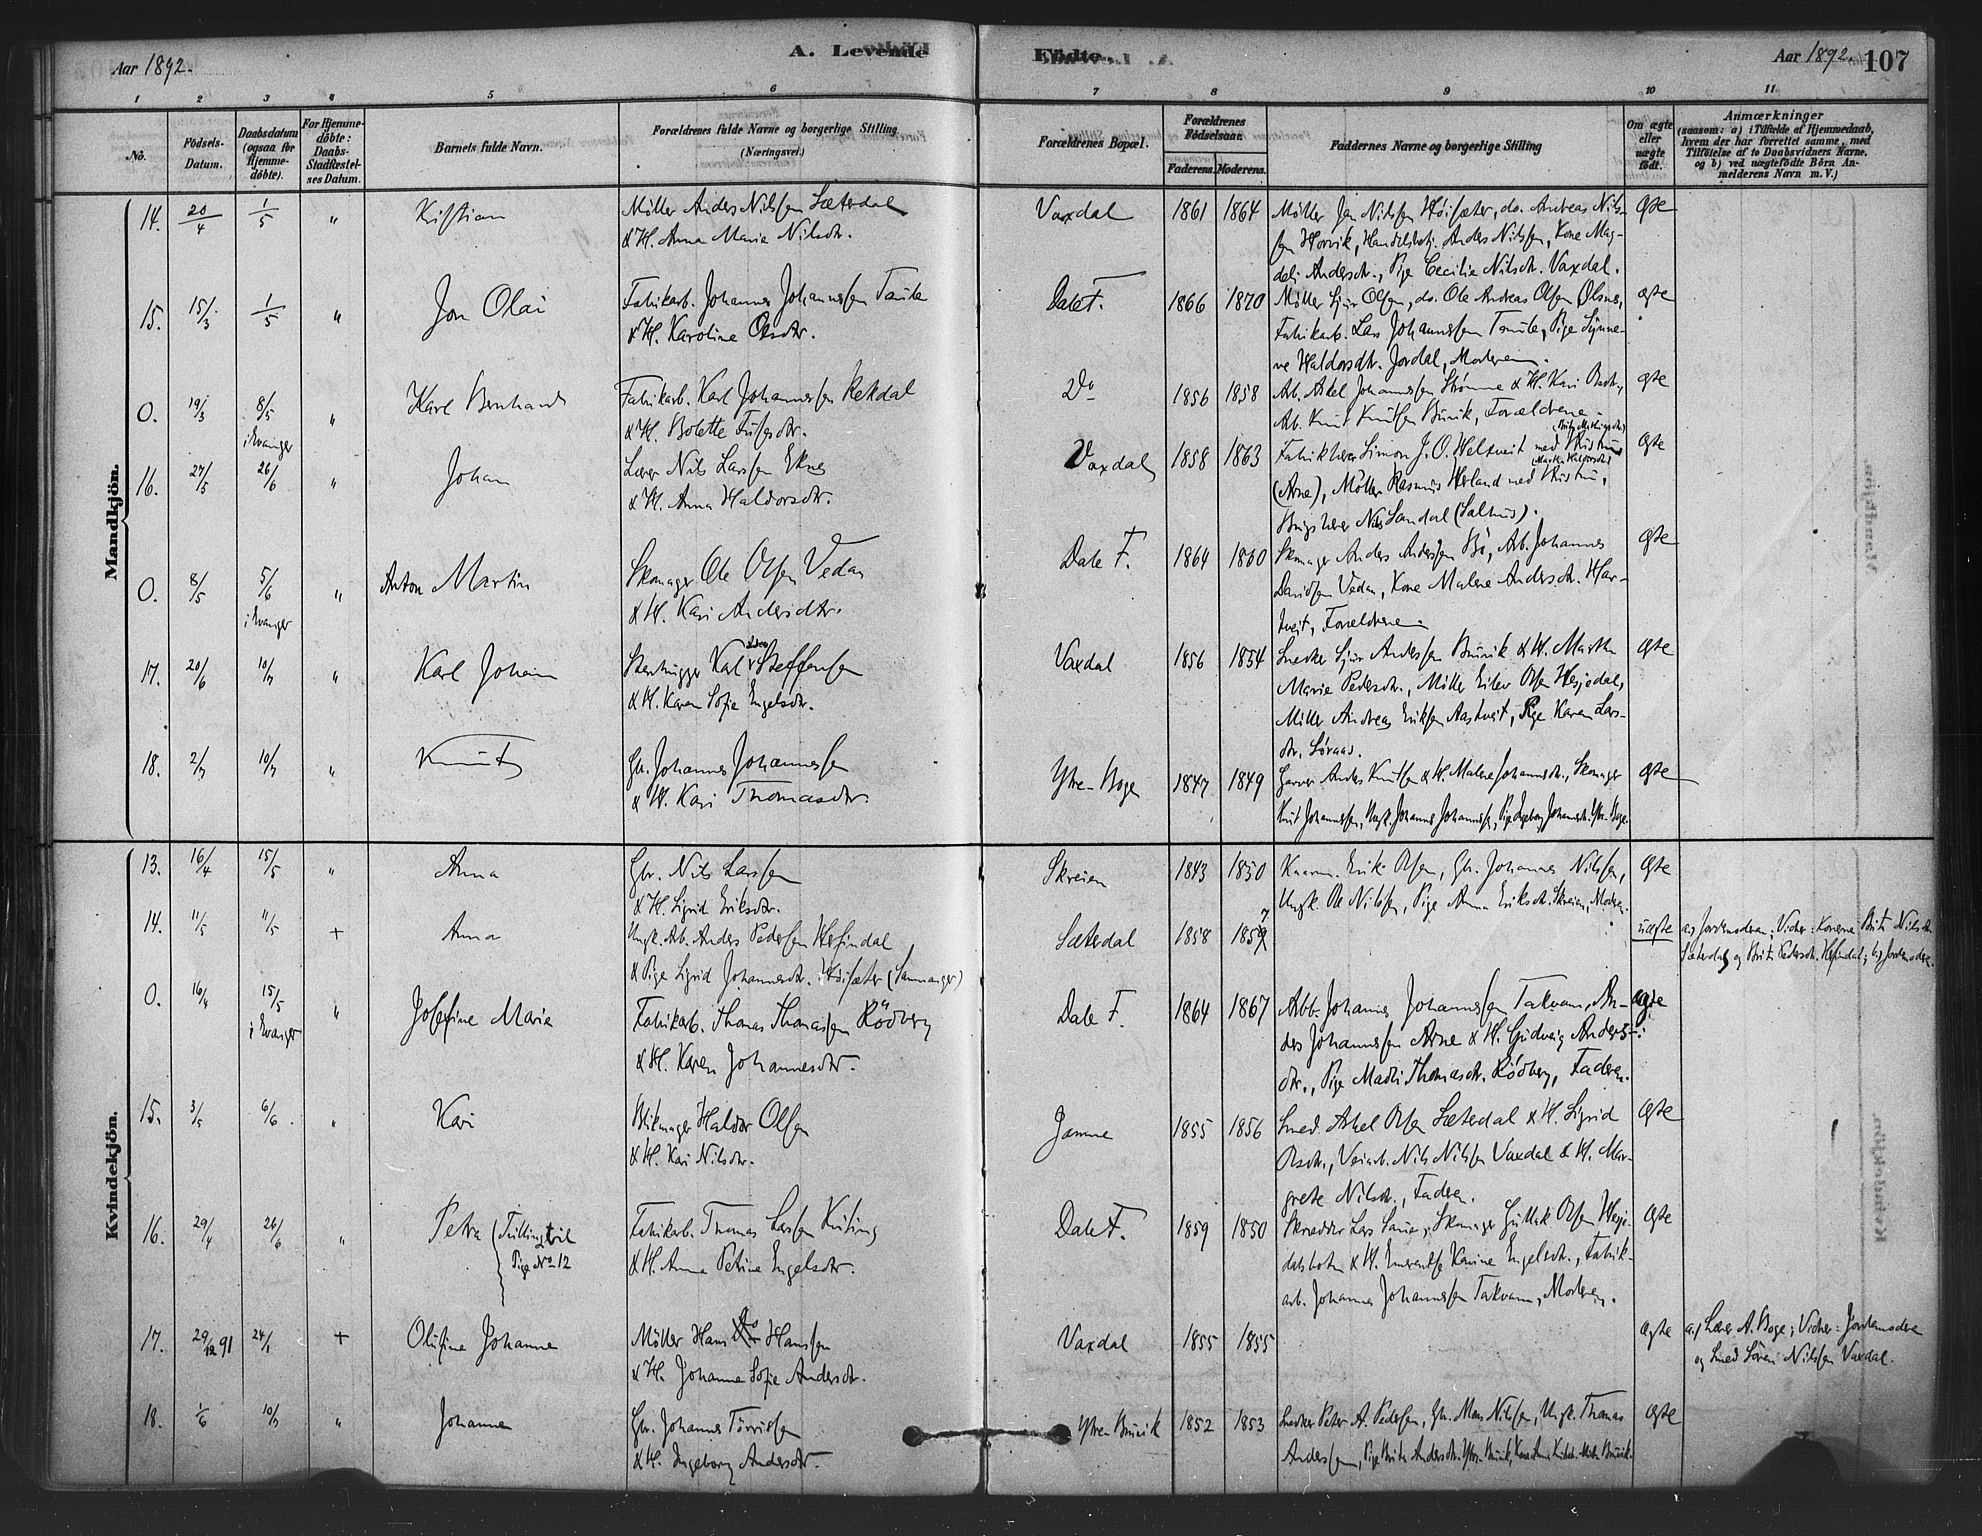 Aar 1892.
A. Levende
Fødte.
Aar 1892.
107
1 2 3 4 5 6 7 8 9 10 11
No.
Födsels-
Datum.
Daabsdatum
(ogsaa for
Hjemme-
döbte).
For Hjemme-
döbte:
Daabs-
Stadfæstel-
ses Datum.
Barnets fulde Navn.
Forældrenes fulde Navne og borgerlige Stilling
(Næringsvei.)
Forældrenes Bopæl.
Forældrenes
Födselsaar.
Faderens. Moderens.
Faddernes Navne og borgerlige Stilling
Om ægte
eller
uægte
født.
Anmærkninger
(saasom: a) i Tilfælde af Hjemmedaab,
hvem der har forrettet samme, med
Tilföielse af to Daabsvidners Navne,
og b) ved uægtefödte Börn An-
melderens Navn m. V.)
Mandkjön.
14. 20/4 1/5 " Kristian
Møller Anders Nilssen Sæterdal
& H. Anna Marie Nilsdtr.
Vaxdal 1861 1864
Møller Jan Nilssen Høisæter, do. Andreas Nils-
sen Horvik, Handelsbetj. Anders Nilssen, Kone Mag-
deli Andersdtr., Pige Cecilie Nilsdtr. Vaxdal.
Ægte
15. 15/3 1/5 " Jon Olai
Fabrikarb. Johannes Johannessen
& H. Karoline Olsdtr.
Dale F. 1866 1870
Møller Sjur Olsen, do. Ole Andreas Olsen
Fabrikarb. Lars Johannessen Pige Synne-
ve Haldorsdtr. Jordal, Moderen.
ægte
0. 19/3 8/5 i Evanger " Karl Bernhard
Fabrikarb. Karl Johannessen Rekdal
& H. Bolette
Do 1856 1858
Arb. Askel Johannessen Strømme & H. Kari
Arb. Knut Knutsen Bruvik, Forældrene.
ægte
16. 27/5 26/6 " Johan
Lærer Nils Larssen Eknes
& H. Anna Haldorsdtr.
Vaxdal 1858 1863
Simon J. O. Heltveit med Hustru
(Arne), Møller Rasmus Herland med Hustru,
Nils Sandal (Salhus).
Ægte
0. 8/5 5/6 i Evanger " Anton Martin
Skomager Ole Olsen Vedan
& H. Kari Andersdtr.
Dale F. 1864 1860
Skomager Anders Anderssen Bø, Arb. Johannes
Davidsen Vedan, Kone Malene Andersdtr. Har-
tveit, Forældrene.
Ægte
17. 20/6 10/7 " Karl Johan
Stenhugger Karl Steffensen
& H. Karen Sofie Engelsdtr.
Vaxdal 1856 1854
Snedker Sjur Anderssen Bruvik & H. Martha
Marie Pedersdtr., Møller Eilev Olsen Hesjedal,
Møller Andreas Eriksen Aastveit, Pige Karen Lars-
dtr. Søraas.
Ægte
18. 2/7 10/7 " Knut
Gbr. Johannes Johannessen
& H. Kari Thomasdtr.
Ytre-Boge 1847 1849
Garver Anders Knutsen & H. Malene Johannesdtr., Skomager
Knut Johannessen, Ungk. Johannes Johannessen, Pige Ingeborg Johannesdtr. Ytre-Boge.
Ægte
Kvindekjön.
13. 16/4 15/5 " Anna
Gbr. Nils Larssen
& H. Sigrid Eriksdtr.
Skreien 1843 1850
Erik Olsen, Gbr. Johannes Nilssen,
Ungk. Ole Nilssen, Pige Anna Eriksdtr. Skreien, Moderen.
Ægte
14. 11/5 11/5 + Anna
Ungk. Arb. Anders Pedersen Hesjedal
& Pige Sigrid Johannesdtr. Høisæter (Samnanger)
Sæterdal 1858 1857
uægte
a) Jordemoderen; Vidner: Konerne Brita Nilsdtr.
Sæterdal og Brita Pedersdtr. Hesjedal; b) Jordemoderen.
0. 16/4 15/5 i Evanger " Josefine Marie
Fabrikarb. Thomas Thomassen Rödberg
& H. Karen Johannesdtr.
Dale F. 1864 1867
Arbb. Johannes Johannessen Takvam, An-
ders Johannessen Arne & H. Gudveig Anders-
dtr., Pige Madli Thomasdtr. Rödberg, Faderen.
Ægte
15. 3/5 6/6 " Kari
Blikmager Haldor Olsen
& H. Kari Nilsdtr.
Jamne 1855 1856
Smed Askel Olsen Sæterdal & H. Sigrid
Olsdtr., Veiarb. Nils Nilssen Vaxdal & H. Mar-
grete Nilsdtr., Faderen.
Ægte
16. 29/4 26/6 " Petra (Tvilling til
Pige No 12
Fabrikarb. Thomas Larssen
& H. Anna Petrine Engelsdtr.
Dale F. 1859 1850
Skrædder Lars Skomager Gullak Olsen Hesje-
dalsbotn & H. Emerentse Karine Engelsdtr., Fabrik-
arb. Johannes Johannessen Takvam, Moderen.
Ægte
17. 29/12 91 24/1 + Olufine Johanne
Møller Hans Hanssen
& H. Johanne Sofie Andersdtr.
Vaxdal 1855 1855
Ægte
a) Lærer A. Boge; Vidner: Jordemoderen
og Smed Søren Nilssen Vaxdal.
18. 1/6 10/7 " Johanna
Gbr. Johannes Torrissen
& H. Ingeborg Andersdtr.
Ytre Bruvik 1852 1853
Snedker Peter A. Pedersen, Gbr. Mons Nilssen, Ungk. Thomas
Anderssen, Pige Brita Andersdtr. Ytre-Bruvik, Kone Anna Bruvik.
Ægte